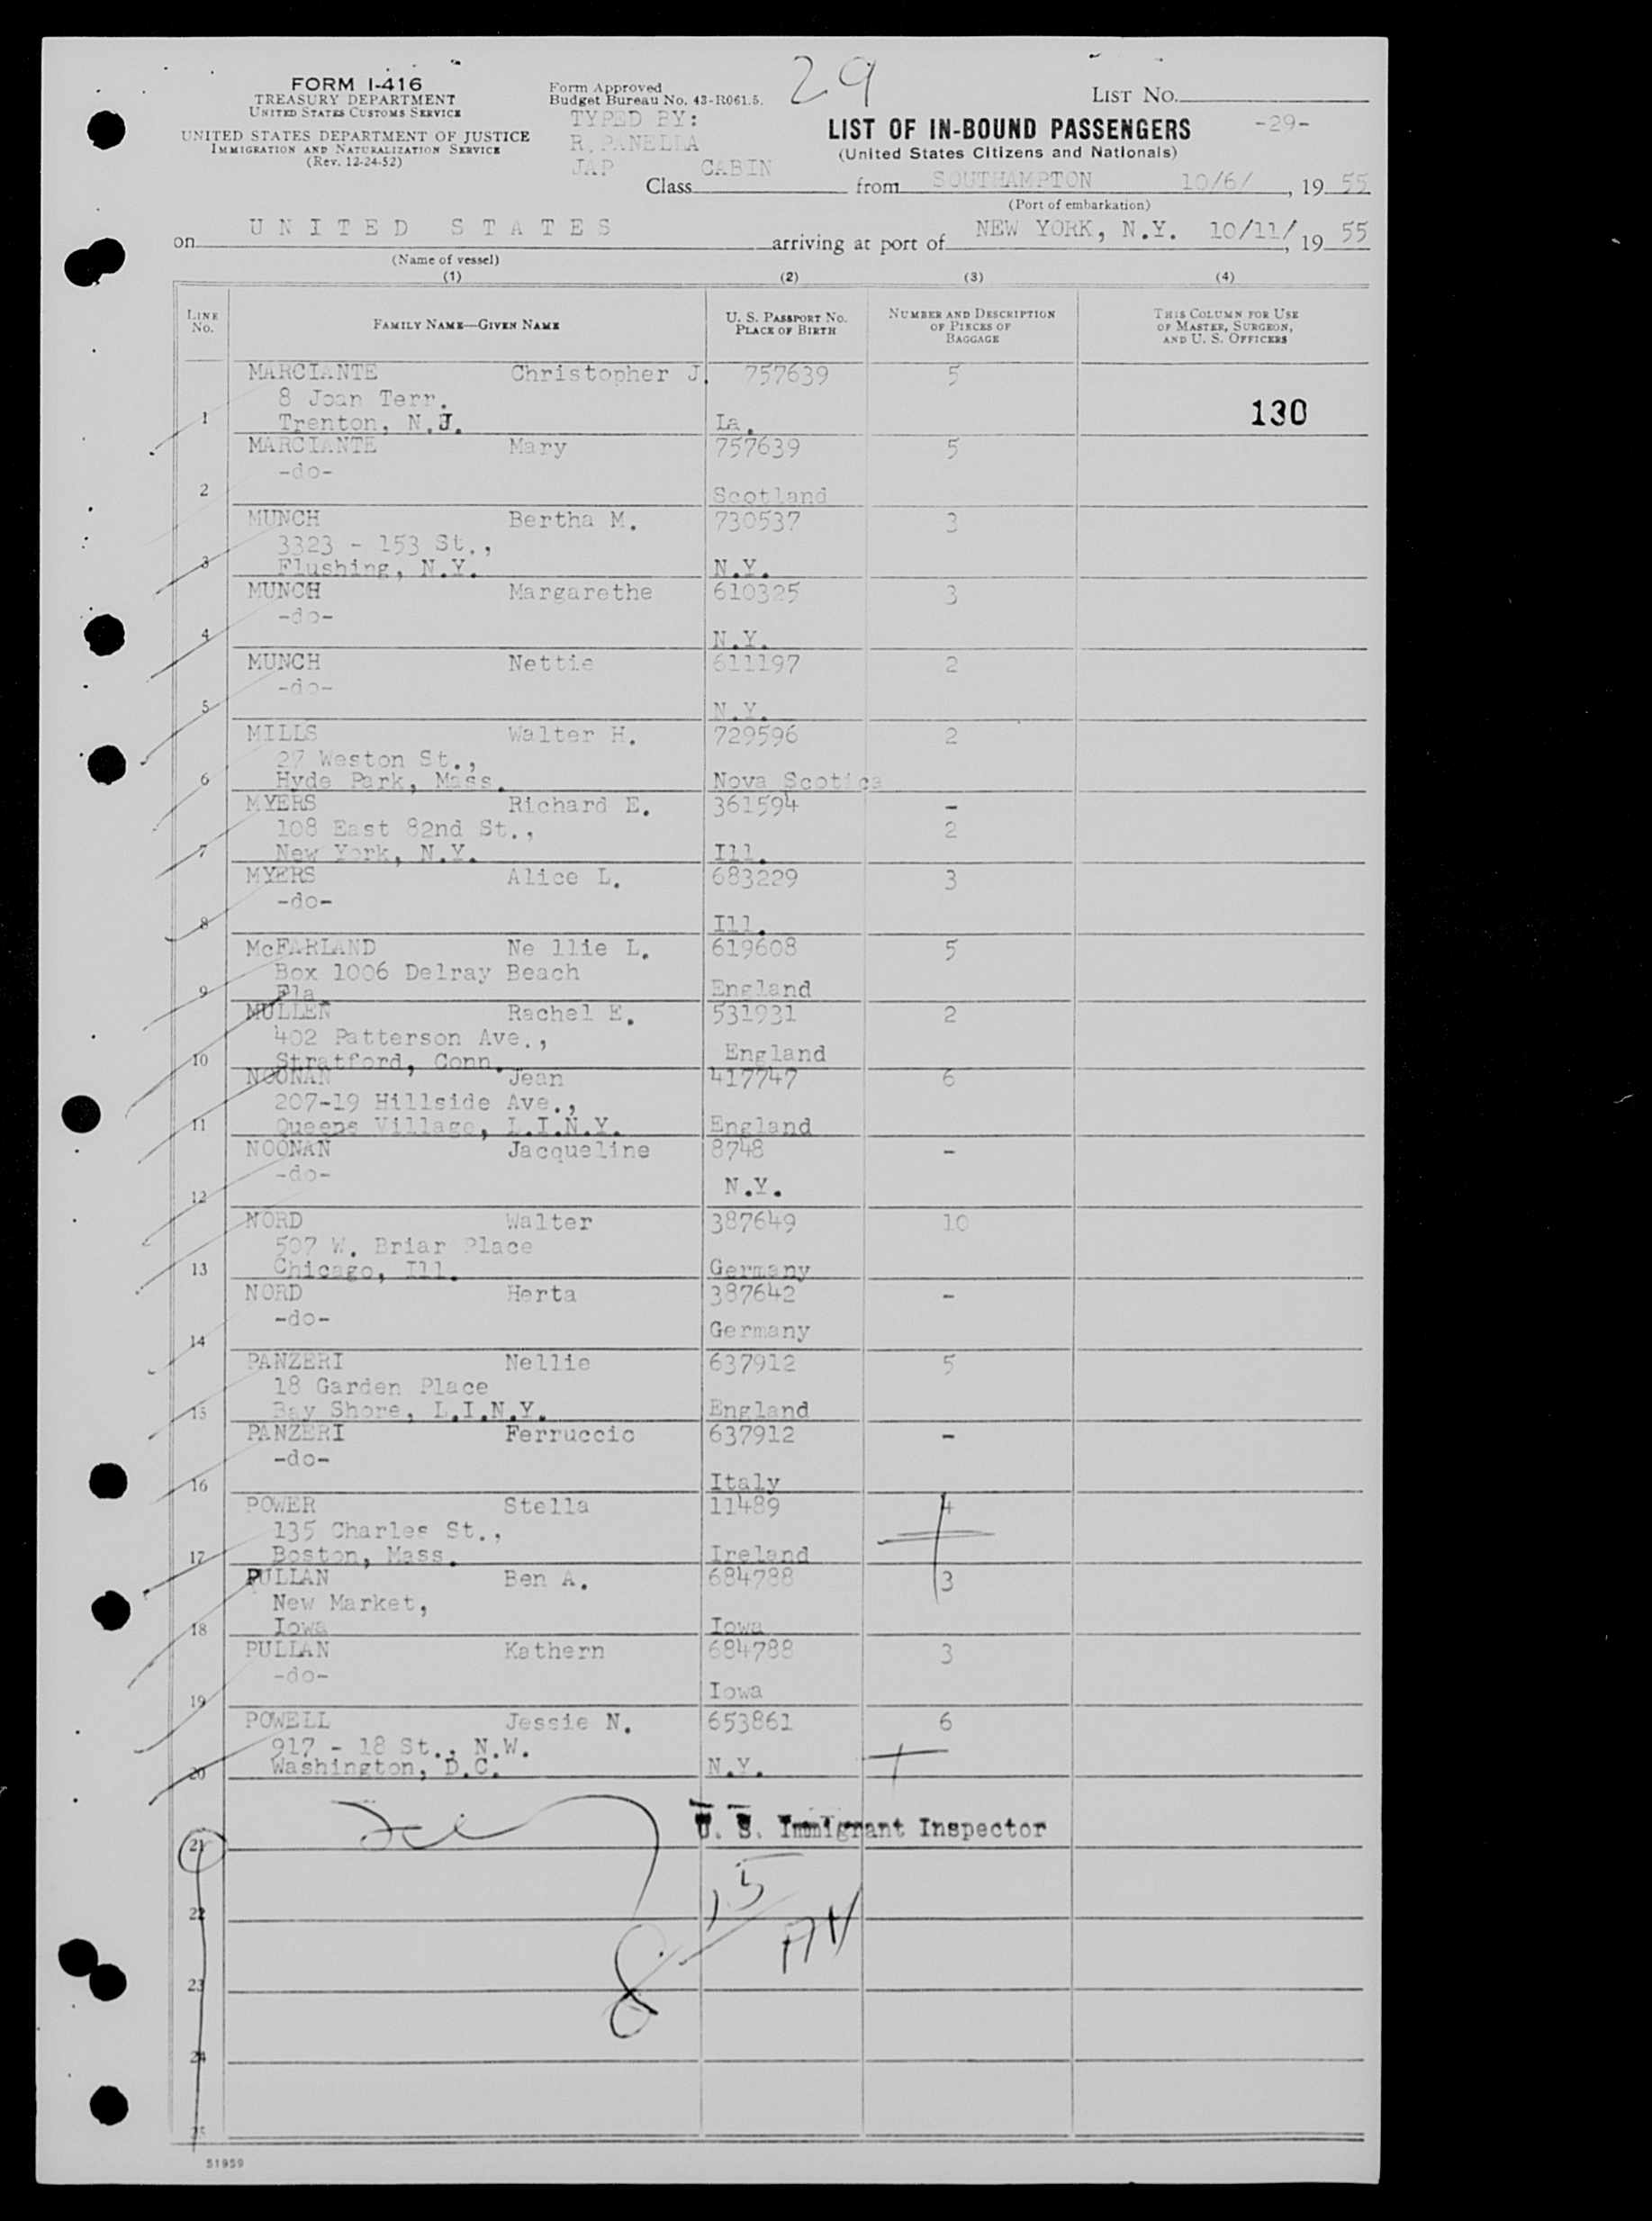 29
FORM I-416
TREASURY DEPARTMENT
UNITED STATES CUSTOMS SERVICE
UNITED STATES DEPARTMENT OF JUSTICE
IMMIGRATION AND NATURALIZATION SERVICE
(Rev. 12-24-52)
Form Approved
Budget Bureau No. 43-R061.5.
TYPED BY:
R. PANELLA
JAP
LIST NO.
-29-
LIST OF IN-BOUND PASSENGERS
(United States Citizens and Nationals)
Class CABIN from SOUTHAMPTON 10/6/, 19 55
(Port of embarkation)
on UNITED STATES arriving at port of NEW YORK, N.Y. 10/11/, 19 55
(Name of vessel)
(1) (2) (3) (4)
LINE NO. FAMILY NAME—GIVEN NAME U. S. PASSPORT NO. PLACE OF BIRTH NUMBER AND DESCRIPTION OF PIECES OF BAGGAGE THIS COLUMN FOR USE OF MASTER, SURGEON, AND U. S. OFFICERS
MARCIANTE Christopher J. 757639 5
8 Joan Terr. 130
1 Trenton, N.J. La.
MARCIANTE Mary 757639 5
-do-
2 Scotland
MUNCH Bertha M. 730537 3
3323 - 153 St.,
3 Flushing, N.Y. N.Y.
MUNCH Margarethe 610325 3
-do-
4 N.Y.
MUNCH Nettie 611197 2
-do-
5 N.Y.
MILLS Walter H. 729596 2
27 Weston St.,
6 Hyde Park, Mass. Nova Scotica
MYERS Richard E. 361594 -
108 East 82nd St., 2
7 New York, N.Y. Ill.
MYERS Alice L. 683229 3
-do-
8 Ill.
McFARLAND Ne llie L. 619608 5
Box 1006 Delray Beach
9 Fla England
MULLEN Rachel E. 531931 2
402 Patterson Ave.,
10 Stratford, Conn. England
NOONAN Jean 417747 6
207-19 Hillside Ave.,
11 Queens Village, L.I.N.Y. England
NOONAN Jacqueline 8748 -
-do-
12 N.Y.
NORD Walter 387649 10
507 W. Briar Place
13 Chicago, Ill. Germany
NORD Herta 387642 -
-do-
14 Germany
PANZERI Nellie 637912 5
18 Garden Place
15 Bay Shore, L.I.N.Y. England
PANZERI Ferruccio 637912 -
-do-
16 Italy
POWER Stella 11489 4
135 Charles St.,
17 Boston, Mass. Ireland
PULLAN Ben A. 684788 3
New Market,
18 Iowa Iowa
PULLAN Kathern 684788 3
-do-
19 Iowa
POWELL Jessie N. 653861 6
917 - 18 St., N.W.
20 Washington, D.C. N.Y.
U. S. Immigrant Inspector
21
22
23
24
25
51959